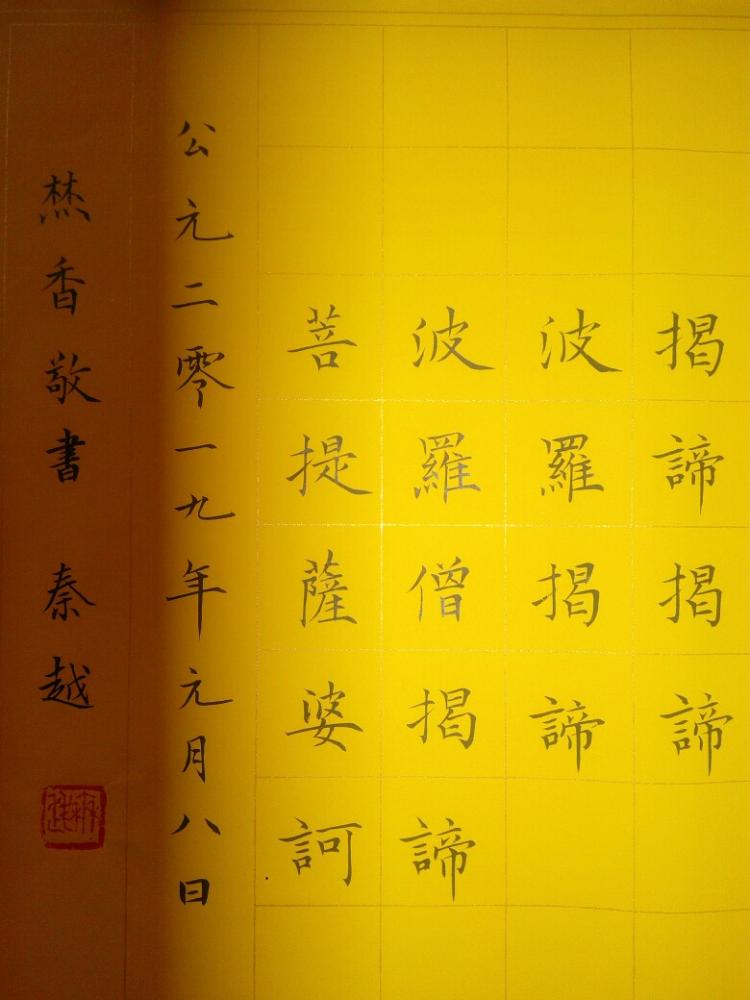 揭諦揭諦
波羅揭諦
波羅僧揭諦
菩提薩婆訶
公元二零一九年元月八日
焚香敬書 秦越